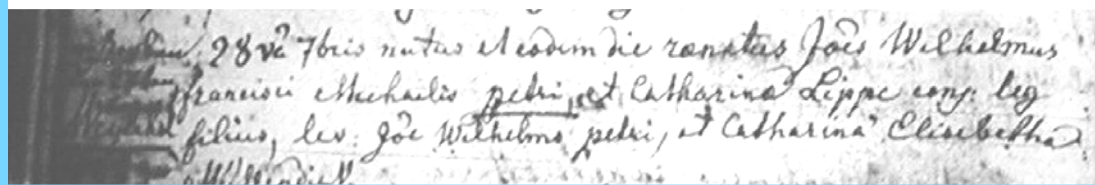 28vâ 7bris natus et eodem die renatus Joês Wilhelmus
francisci Michaelis petri, et Catharina Lippe conj: leg
filius, lev: Jôe Wilhelmo petri, et Catharina Elisabetha